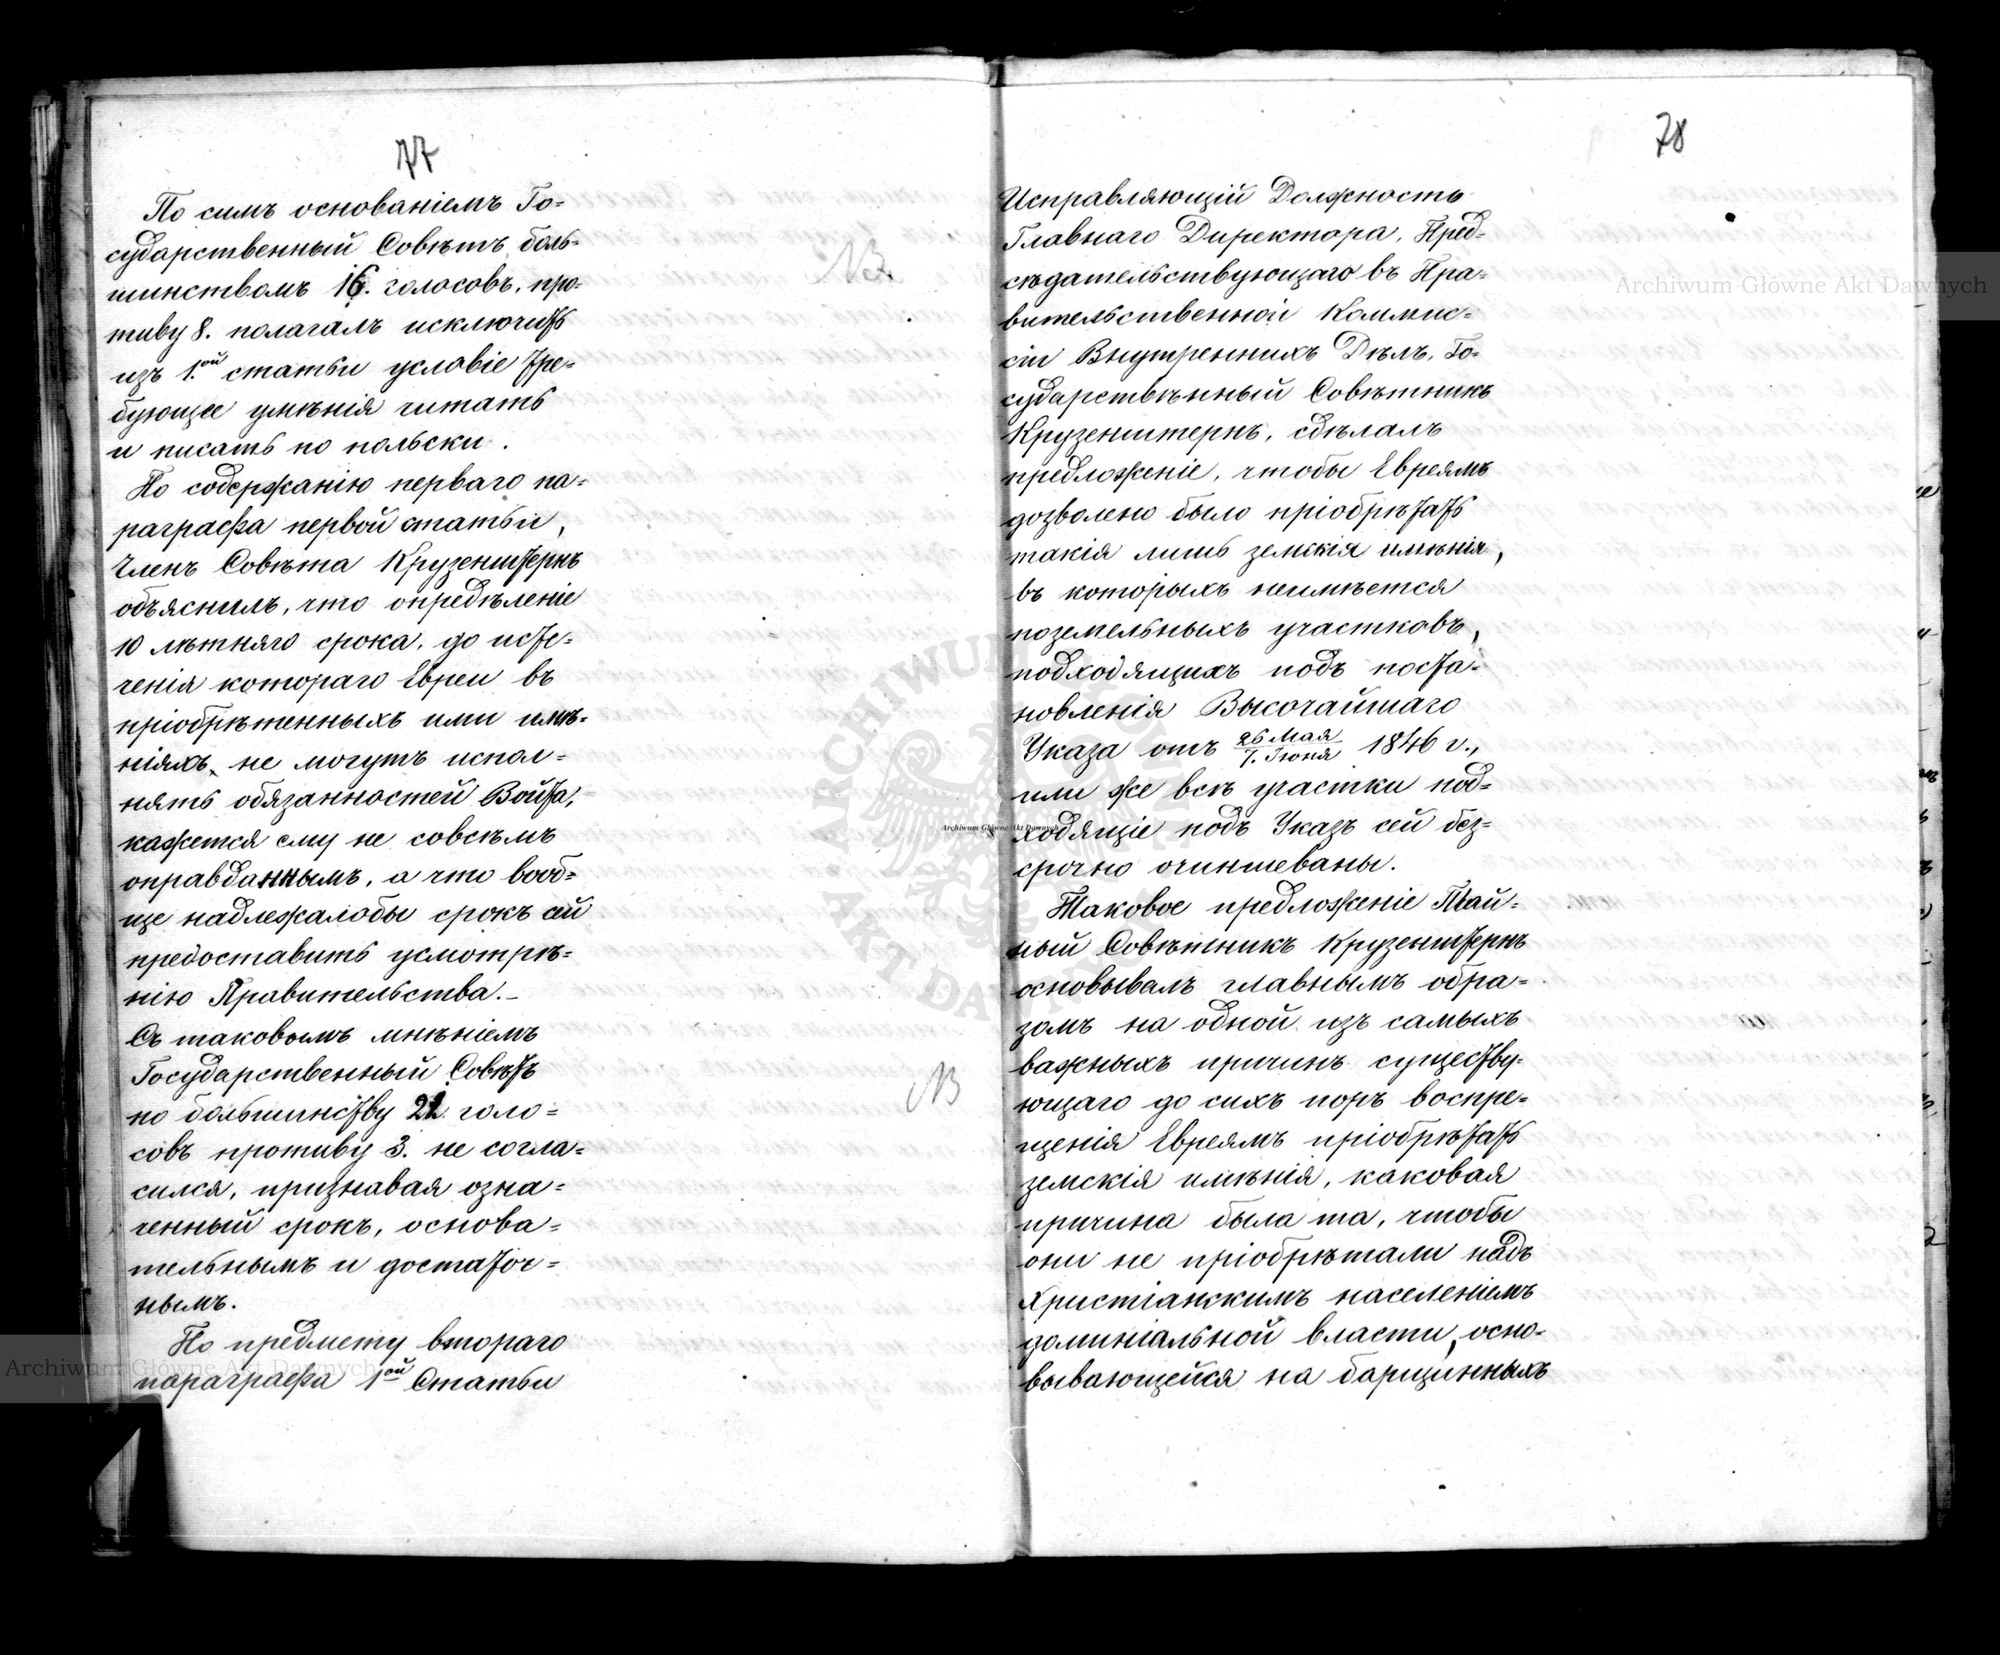 77
По симъ основаніемъ Го=
сударственный Совѣтъ боль=
шинствомъ 16. голосовъ, про=
тиву 8. полагалъ исключить
изъ 1.ой статьи условіе тре=
бующее умѣнія читать
и писать по польски.
По содержанію перваго па=
раграфа первой статьи,
Членъ Совѣта Крузенштернъ
объяснилъ, что опредѣленіе
10 лѣтняго срока, до исте=
ченія котораго Евреи въ
пріобрѣтенныхъ ими имѣ=
ніяхъ, не могутъ испол=
нять обязанностей Войта,
кажется ему не совсѣмъ
оправданнымъ, а что вооб=
ще надлежалобы срокъ сей
предоставить усмотрѣ=
нію Правительства.—
Съ таковымъ мнѣніемъ
Государственный Совѣтъ
по большинству 21 голо=
совъ противу 3. не согла=
сился, признавая озна=
ченный срокъ, основа=
тельнымъ и достаточ=
нымъ.
По предмету втораго
параграфа 1ой Статьи
NB.
NB
78
Исправляющій Должность
Главнаго Директора, Пред=
сѣдательствующаго въ Пра=
вительственной Коммис=
сіи Внутреннихъ Дѣлъ, Го=
сударствѣнный Совѣтникъ
Крузенштернъ, сдѣлалъ
предложеніе, чтобы Евреямъ
дозволено было пріобрѣтать
такія лишь земскія имѣнія,
въ которыхъ неимѣется
поземельныхъ участковъ,
подходящихъ подъ поста=
новленія Высочайшаго
Указа отъ 26 Мая / 7. Іюня 1846 г.,
или же всѣ участки под=
ходящіе подъ Указъ сей без=
срочно очиншеваны.
Таковое предложеніе Тай=
ный Совѣтникъ Крузенштернъ
основывалъ главнымъ обра=
зомъ на одной изъ самыхъ
важныхъ причинъ существу=
ющаго до сихъ поръ воспре=
щенія Евреямъ пріобрѣтать
земскія имѣнія, каковая
причина была та, чтобы
они не пріобрѣтали надъ
Христіанскимъ населеніемъ
доминіальной власти, осно=
вывающейся на барщинныхъ
Archiwum Główne Akt Dawnych
Archiwum Główne Akt Dawnych
Archiwum Główne Akt Dawnych